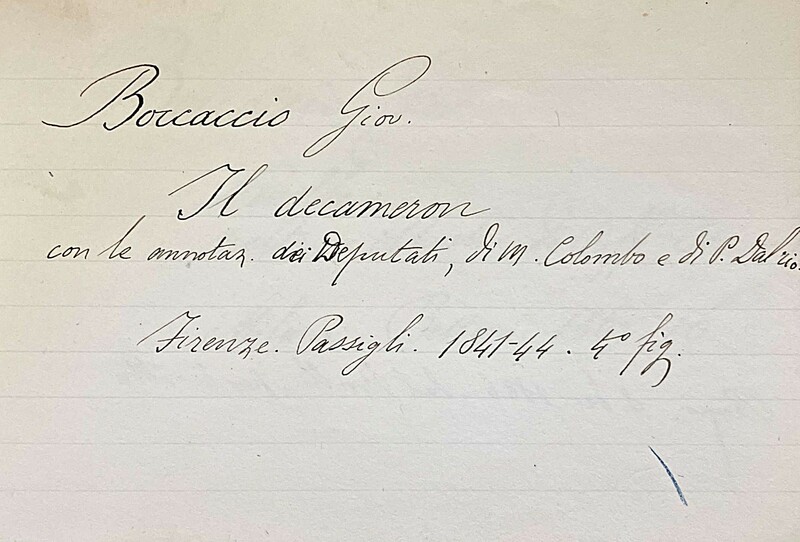 Boccaccio Giov.
Il decameron
con le annotaz. dei Deputati, di M. Colombo e di P. Dal rio.
Firenze. Passigli. 1841-44. 4° fig.